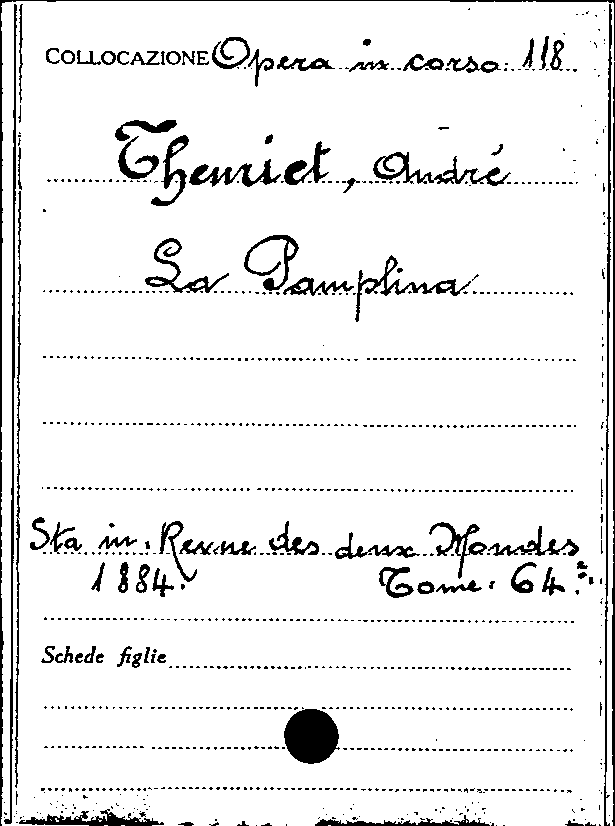 COLLOCAZIONE Opera in corso. 118
Theuriet, André
La Pamplina
Sta in. Revue des deux Mondes
1884. Tome. 64.
Schede figlie